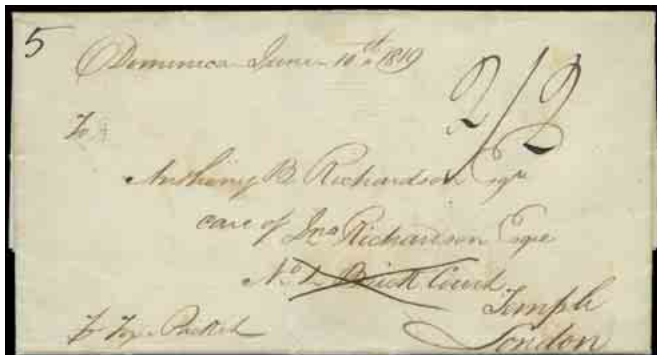 5
Dominica June 10th 1819
2/2
To
Anthony B Richardson Esqr
care of Jno Richardson Esqre
No 2 Brick Court
Temple
London
Packet